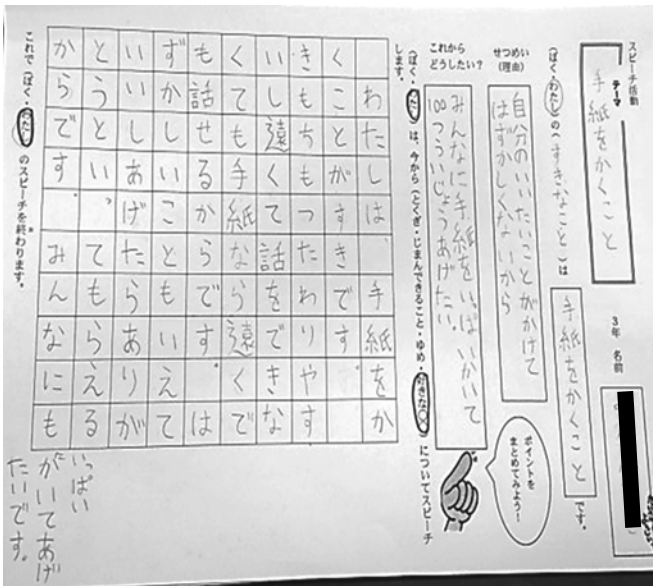 スピーチ活動
テーマ
手紙をかくこと
3年 名前
(ぼく・わたし)の(すきなこと)は
手紙をかくこと
です。
せつめい
(理由)
自分のいいたいことがかけて
はずかしくないから
これから
どうしたい?
みんなに手紙をいっぱいかいて
100つういじょうあげたい。
ポイントを
まとめてみよう!
(ぼく・わたし)は、今から(とくぎ・じまんできること・ゆめ・好きな○○)についてスピーチ
します。
わたしは手紙をか
くことがすきです。
きもちもつたわりやす
いし遠くて話をできな
くても手紙なら遠くで
も話せるからです。は
ずかしいこともいえて
いいしあげたらありが
とうといって、もらえる
からです。みんなにも
いっぱい
がいてあげ
たいです。
これで(ぼく・わたし)のスピーチを終わります。